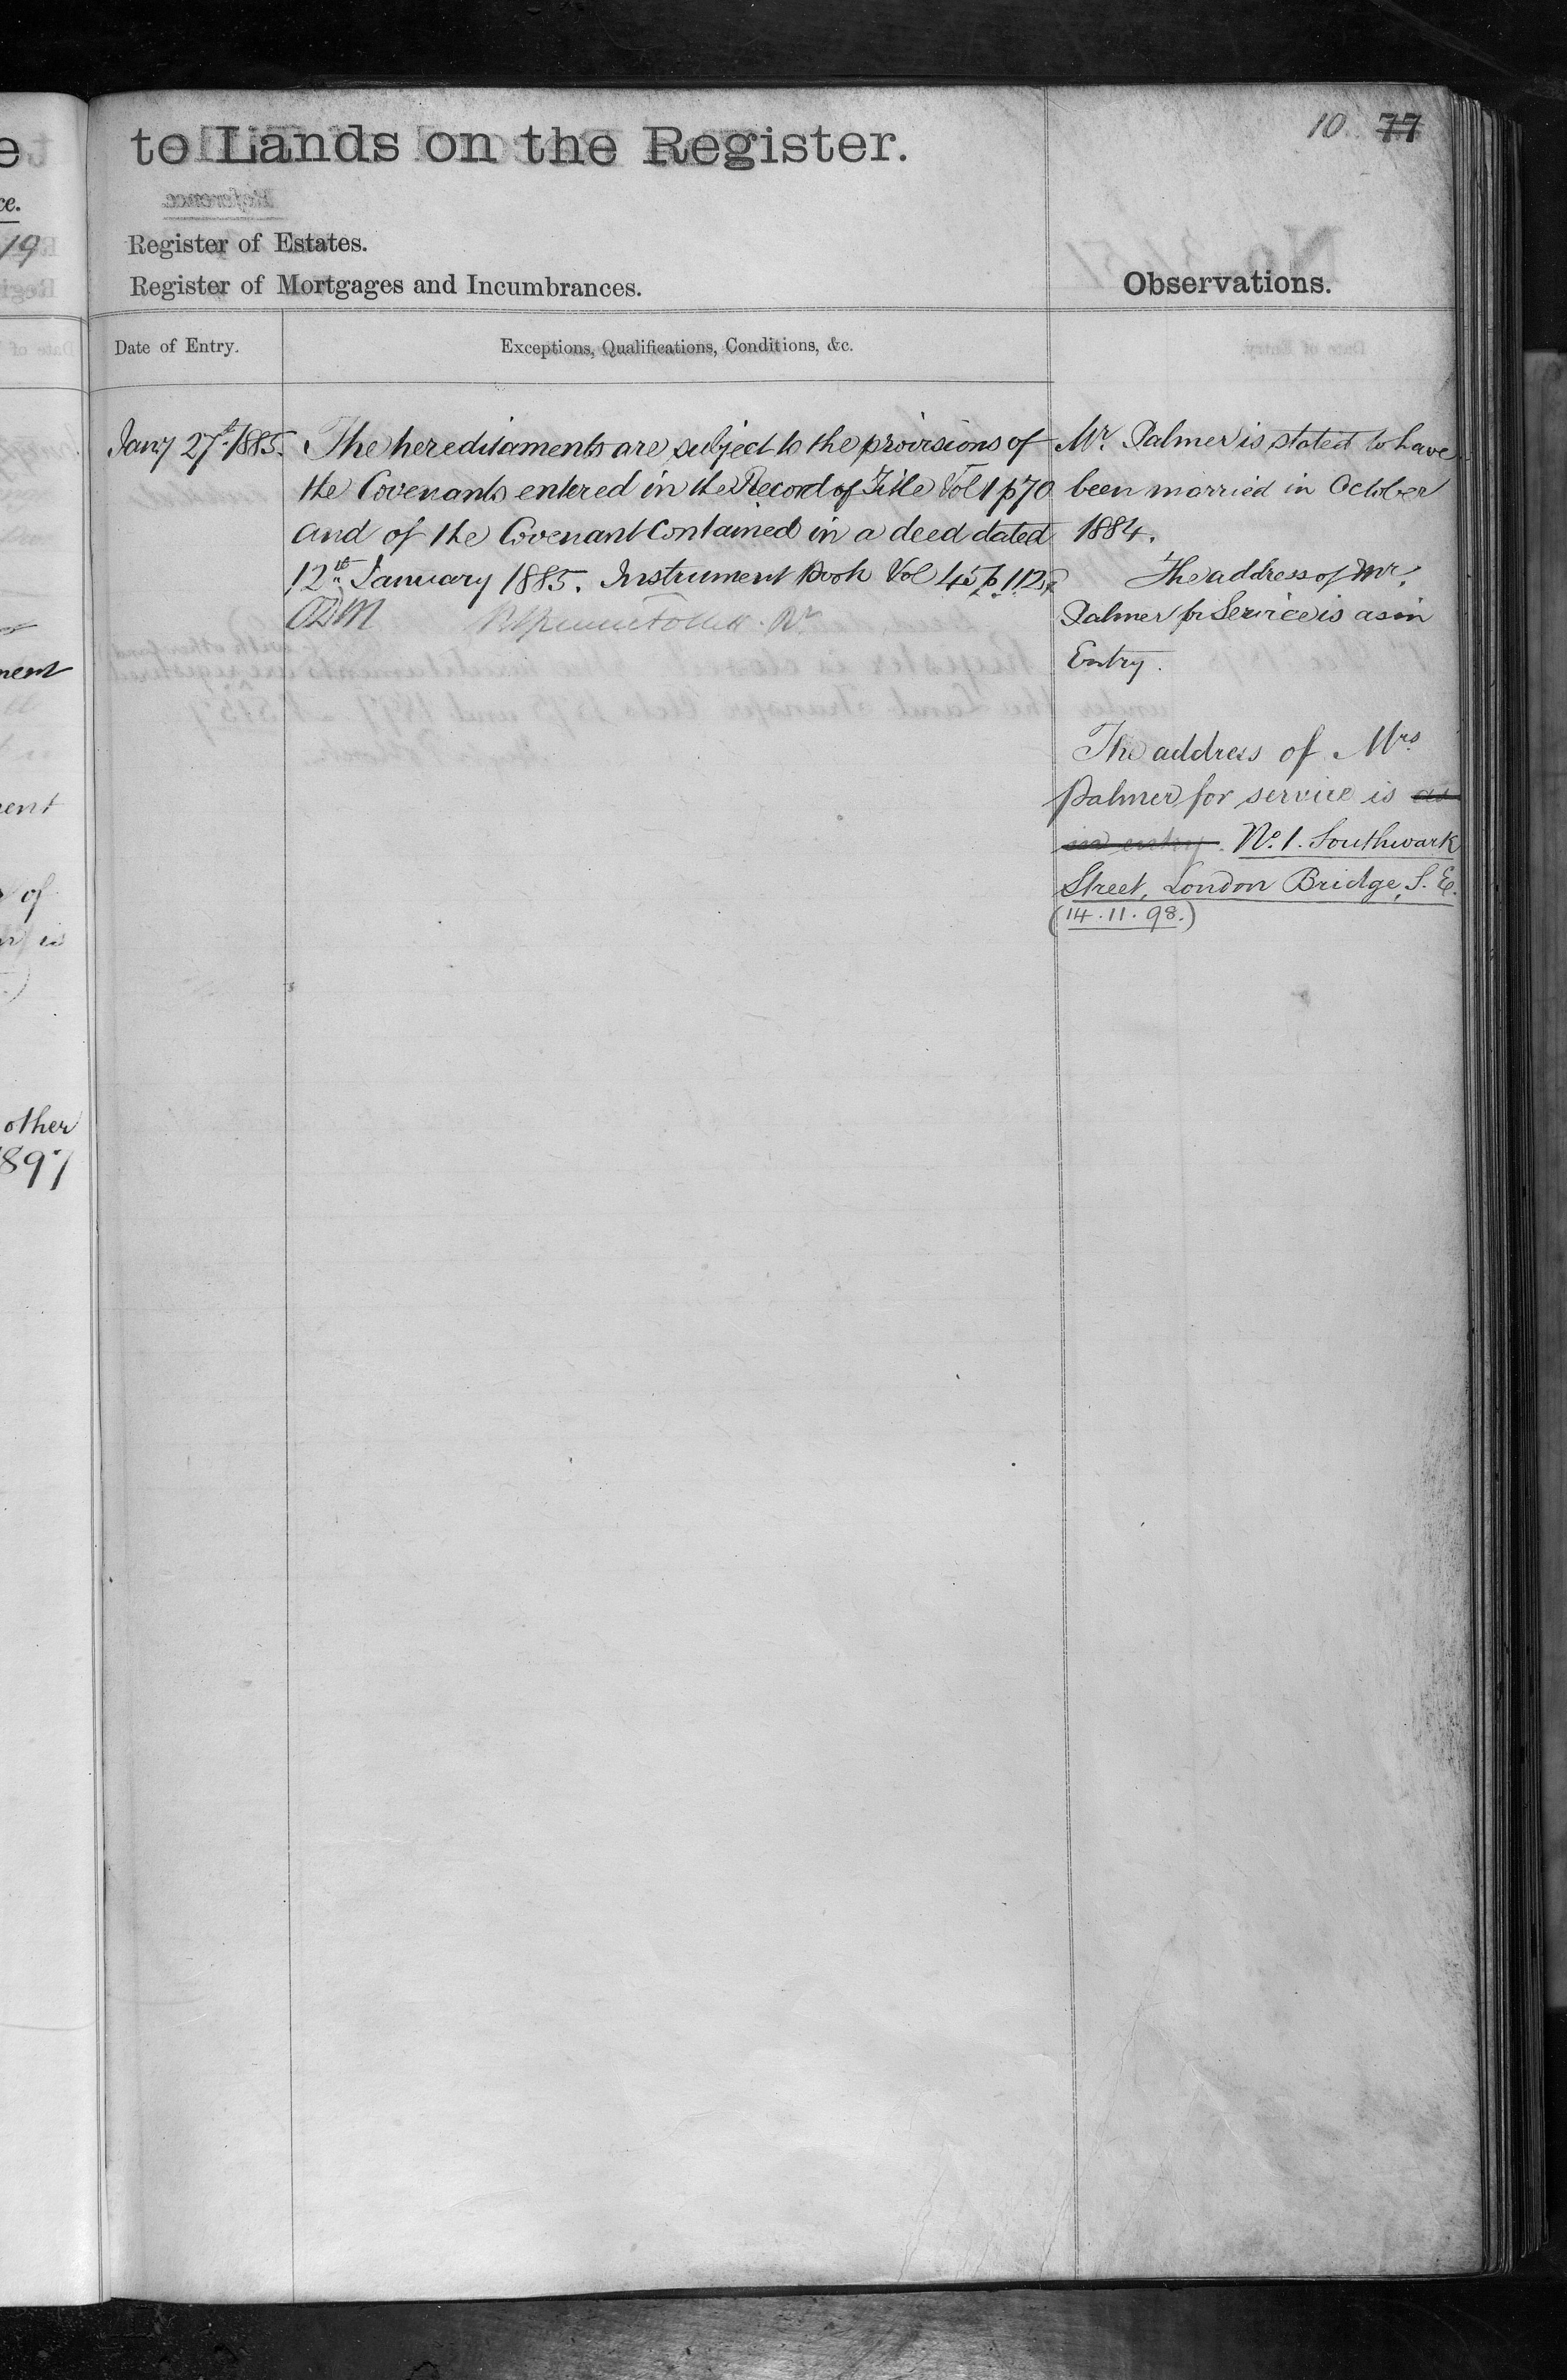 10 77
to Lands on the Register.
Register of Estates.
Register of Mortgages and Incumbrances.
Observations.
Date of Entry.
Exceptions, Qualifications, Conditions, &c.
Jany 27th 1885.
The hereditaments are subject to the provisions of
the Covenants entered in the Record of Title Vol 1 p 70
and of the Covenant contained in a deed dated
12th January 1885. Instrument Book Vol
Mr. Palmer is stated to have
been married in October
1884.
The address of Mr.
Palmer for Service is as in
Entry.
The address of Mrs.
Palmer for service is as
in entry. No. 1. Southwark
Street, London Bridge, S. E.
(14.11.98.)
e
ce.
19
ment
ent
of
is
other
1897